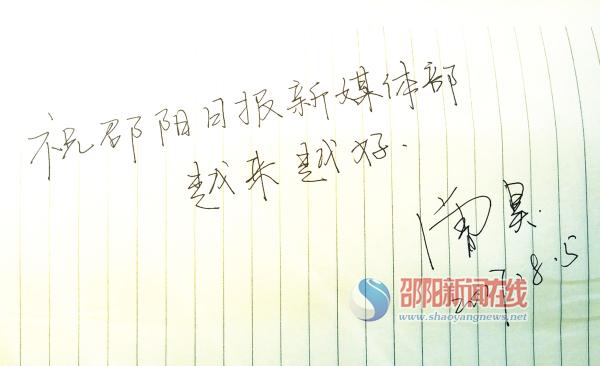 祝邵阳日报新媒体部
越来越好.
昊.
2017.8.5
邵阳新闻在线
www.shaoyangnews.net